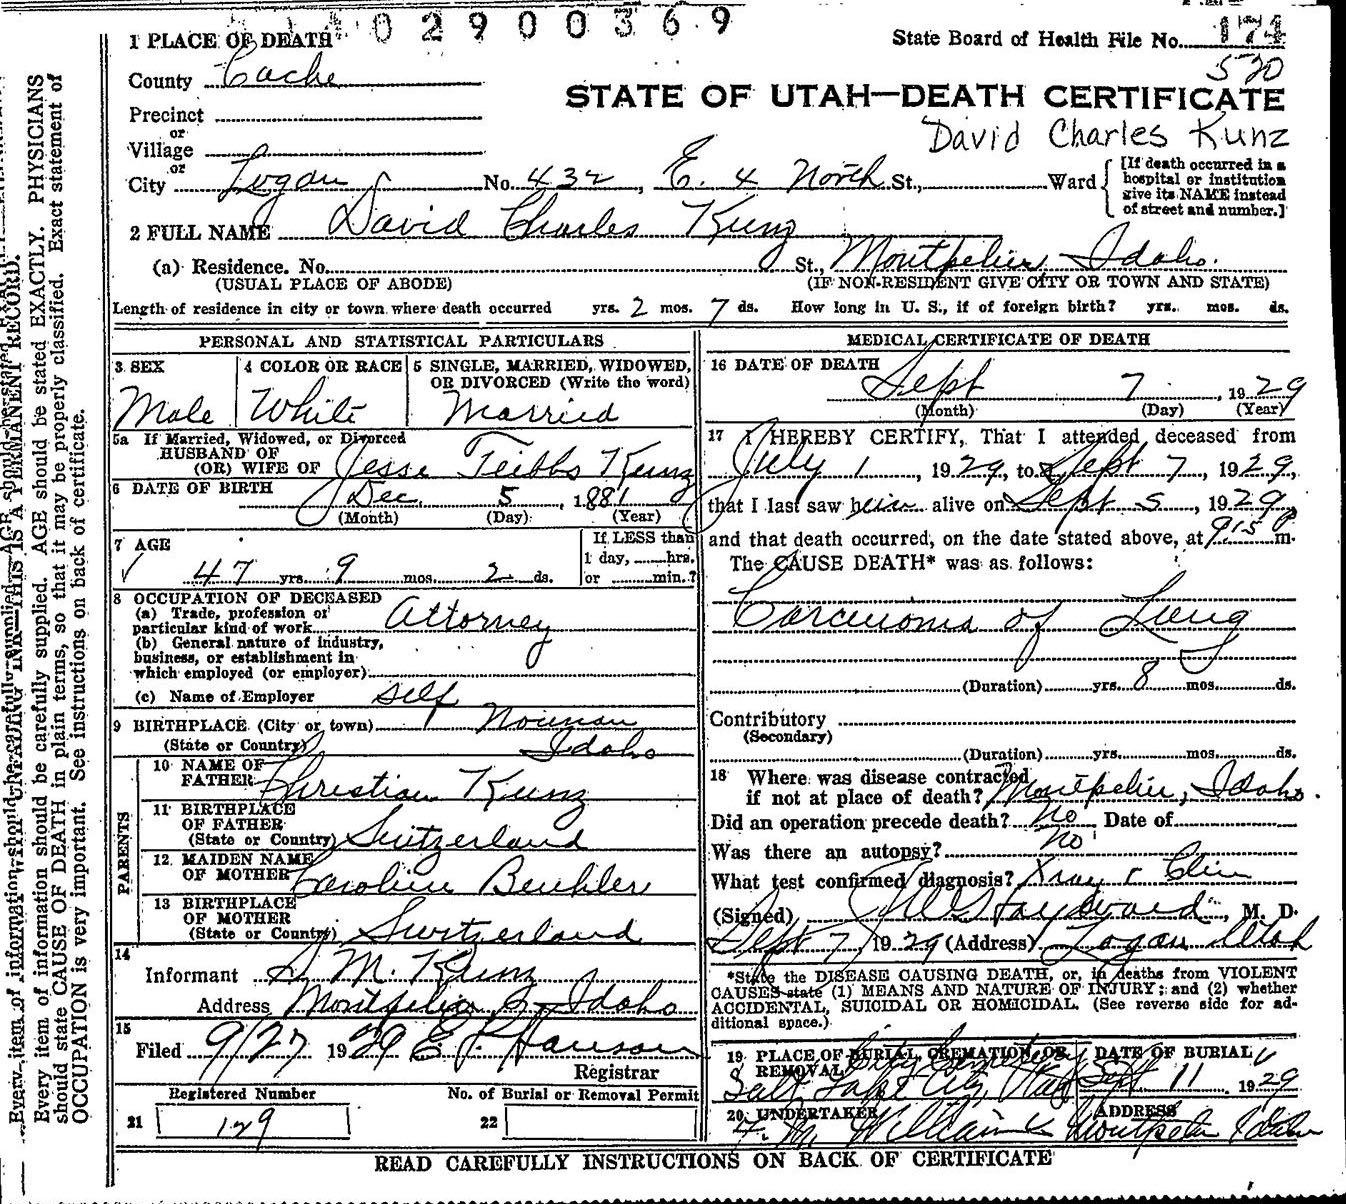 02900369
1 PLACE OF DEATH
State Board of Health File No. 174
520
County Cache
STATE OF UTAH—DEATH CERTIFICATE
Precinct
David Charles Kunz
or
Village
or
City Logan No. 432, E. 4 North St., Ward [If death occurred in a hospital or institution give its NAME instead of street and number.]
2 FULL NAME David Charles Kunz
(a) Residence. No. St., Montpelier, Idaho.
(USUAL PLACE OF ABODE) (IF NON-RESIDENT GIVE CITY OR TOWN AND STATE)
Length of residence in city or town where death occurred yrs. 2 mos. 7 ds. How long in U. S., if of foreign birth? yrs. mos. ds.
PERSONAL AND STATISTICAL PARTICULARS
3 SEX
Male
4 COLOR OR RACE
White
5 SINGLE, MARRIED, WIDOWED,
OR DIVORCED (Write the word)
Married
5a If Married, Widowed, or Divorced
HUSBAND OF
(OR) WIFE OF Jesse Teibbs Kunz
6 DATE OF BIRTH
Dec. 5, 1881
(Month) (Day) (Year)
7 AGE
47 yrs. 9 mos. 2 ds.
If LESS than
1 day, hrs.
or min.?
8 OCCUPATION OF DECEASED
(a) Trade, profession or
particular kind of work Attorney
(b) General nature of industry,
business, or establishment in
which employed (or employer)
(c) Name of Employer self
9 BIRTHPLACE (City or town) Nounan
(State or Country) Idaho
PARENTS
10 NAME OF
FATHER Christian Kunz
11 BIRTHPLACE
OF FATHER
(State or Country) Switzerland
12 MAIDEN NAME
OF MOTHER Caroline Beuhler
13 BIRTHPLACE
OF MOTHER
(State or Country) Switzerland
14
Informant M. Kunz
Address Montpelier Idaho
15
Filed 9/27 1929 Hanson
Registrar
Registered Number
21 129
No. of Burial or Removal Permit
22
MEDICAL CERTIFICATE OF DEATH
16 DATE OF DEATH
Sept 7, 1929
(Month) (Day) (Year)
17 I HEREBY CERTIFY, That I attended deceased from
July 1, 1929, to Sept 7, 1929,
that I last saw him alive on Sept 5, 1929,
and that death occurred, on the date stated above, at 915 P m.
The CAUSE DEATH* was as follows:
Carcinoma of Lung
(Duration) yrs. 8 mos. ds.
Contributory
(Secondary)
(Duration) yrs. mos. ds.
18 Where was disease contracted
if not at place of death? Montpelier, Idaho.
Did an operation precede death? no Date of
Was there an autopsy? no
What test confirmed diagnosis? Xray & Clin
(Signed) Hayward, M. D.
Sept 7 1929 (Address) Logan Utah
*State the DISEASE CAUSING DEATH, or, in deaths from VIOLENT
CAUSES state (1) MEANS AND NATURE OF INJURY; and (2) whether
ACCIDENTAL, SUICIDAL OR HOMICIDAL. (See reverse side for ad-
ditional space.)
19 PLACE OF BURIAL, CREMATION, OR
REMOVAL City Cemetery
Salt Lake City, Utah
DATE OF BURIAL
Sept 11 1929
20 UNDERTAKER
F. M. Williams
ADDRESS
Montpelier Idaho
READ CAREFULLY INSTRUCTIONS ON BACK OF CERTIFICATE
Every item of information should be carefully supplied. AGE should be stated EXACTLY. PHYSICIANS
should state CAUSE OF DEATH in plain terms, so that it may be properly classified. Exact statement of
OCCUPATION is very important. See instructions on back of certificate.